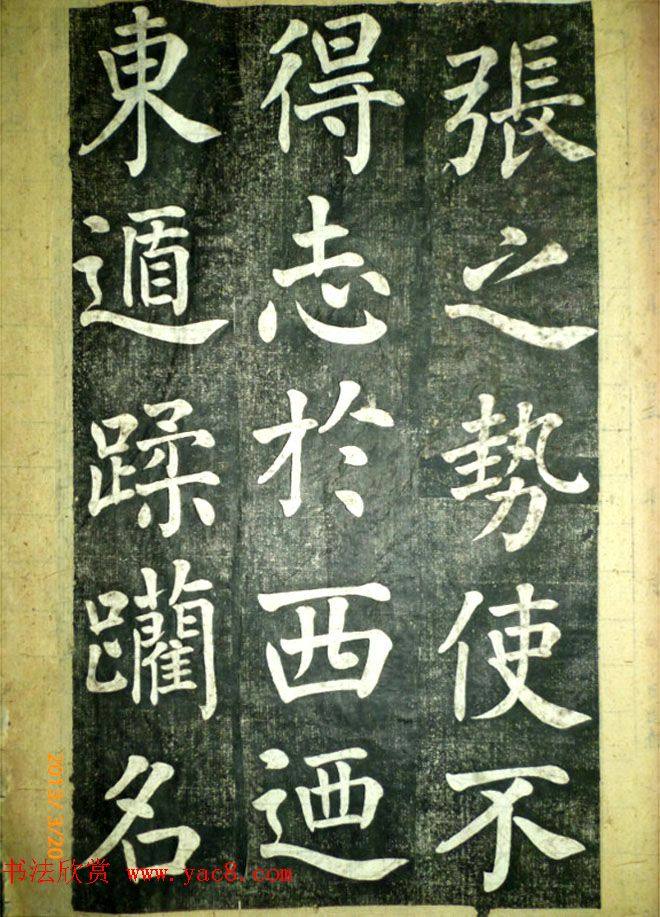 張之勢使不
得志於西迺
東遁蹂躪名
2013/ 3/20
书法欣赏 www.yac8.com